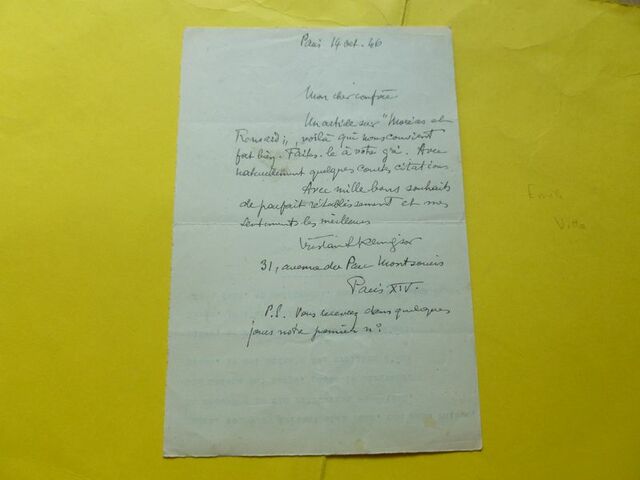 Paris 14 oct. 46
Mon cher confrère
Un article sur "Moréas et
Ronsard", voilà qui nous convient
fort bien. Faites-le à votre gré. Avec
naturellement quelques courtes citations.
Avec mille bons souhaits
de parfait rétablissement et mes
sentiments les meilleurs
Tristan Klingsor
31, avenue du Parc Montsouris
Paris XIV.
P.S. Vous recevrez dans quelques
jours notre premier n°